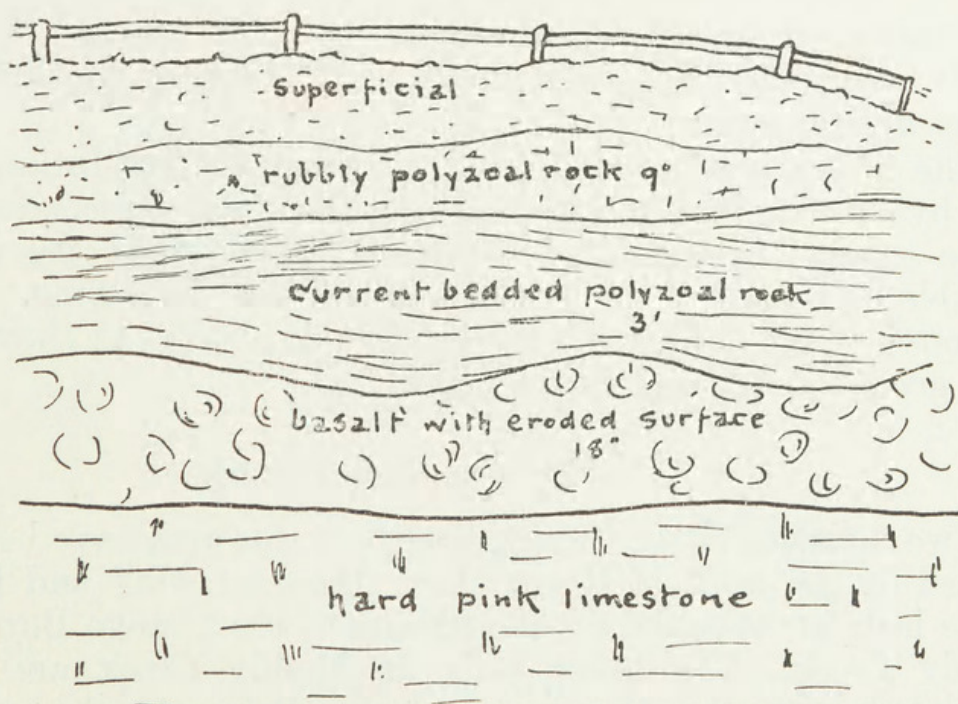 superficial
rubbly polyzoal rock 9"
current bedded polyzoal rock
3'
basalt with eroded surface
18"
hard pink limestone